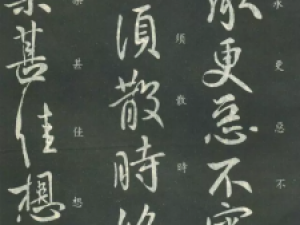 承更惡不
承更惡不
須散時
須散時
甚佳想
甚佳想